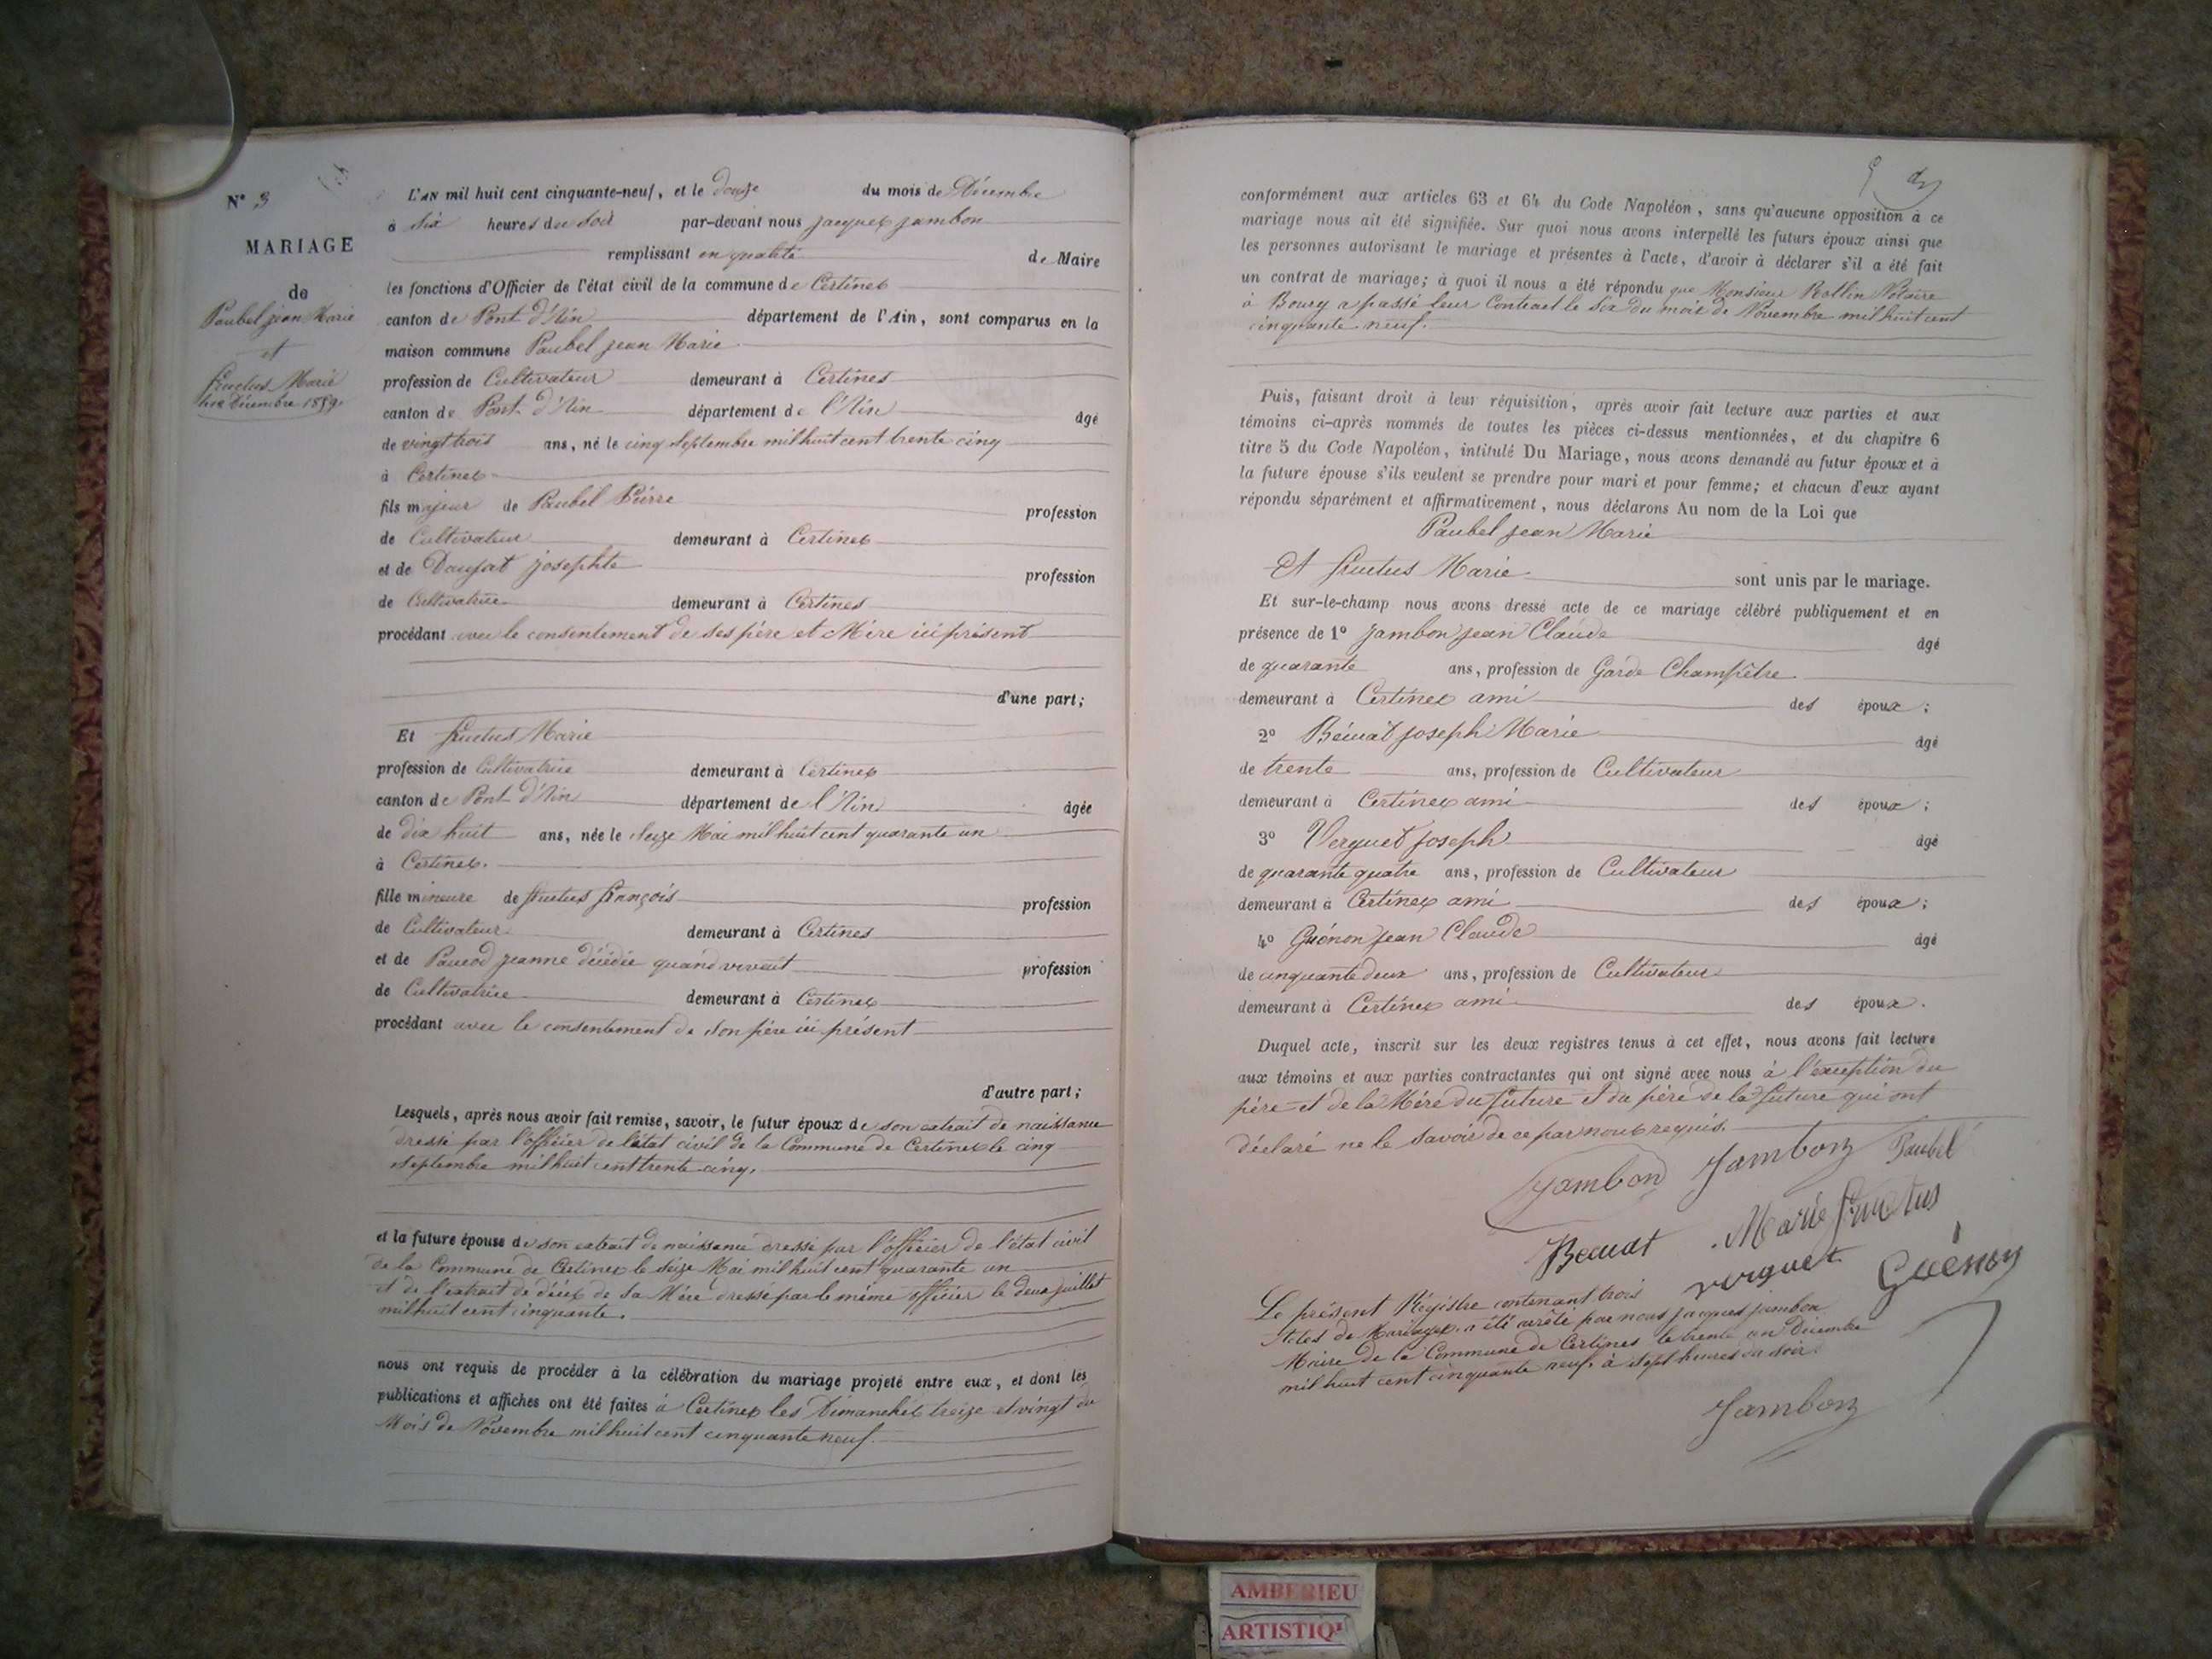 N° 3
MARIAGE
de
Paubel jean Marie
et
fructus Marie
Décembre 1859.
L'AN mil huit cent cinquante-neuf, et le douze du mois de Décembre
à six heures du soir par-devant nous jacques jambon
remplissant en qualité de Maire
les fonctions d'Officier de l'état civil de la commune de Certines
canton de Pont d'Ain département de l'Ain, sont comparus en la
maison commune Paubel jean Marie
profession de Cultivateur demeurant à Certines
canton de Pont d'Ain département de l'Ain âgé
de vingt trois ans, né le cinq septembre mil huit cent trente cinq
à Certines
fils majeur de Paubel Pierre profession
de Cultivateur demeurant à Certines
et de josephte profession
de Cultivatrice demeurant à Certines
procédant avec le consentement de ses père et Mère ici présent
d'une part;
Et fructus Marie
profession de Cultivatrice demeurant à Certines
canton de Pont d'Ain département de l'Ain âgée
de dix huit ans, née le seize Mai mil huit cent quarante un
à Certines.
fille mineure de fructus françois profession
de Cultivateur demeurant à Certines
et de jeanne décédée quand vivait profession
de Cultivatrice demeurant à Certines
procédant avec le consentement de son père ici présent
d'autre part;
Lesquels, après nous avoir fait remise, savoir, le futur époux de son extrait de naissance
dressé par l'officier de l'état civil de la Commune de Certines le cinq
septembre mil huit cent trente cinq.
et la future épouse de son extrait de naissance dressé par l'officier de l'état civil
de la Commune de Certines le seize Mai mil huit cent quarante un
et de l'extrait de décès de sa Mère dressé par le même officier le deux juillet
mil huit cent cinquante.
nous ont requis de procéder à la célébration du mariage projeté entre eux, et dont les
publications et affiches ont été faites à Certines les Dimanches treize et vingt du
Mois de Novembre mil huit cent cinquante neuf.
conformément aux articles 63 et 64 du Code Napoléon, sans qu'aucune opposition à ce
mariage nous ait été signifiée. Sur quoi nous avons interpellé les futurs époux ainsi que
les personnes autorisant le mariage et présentes à l'acte, d'avoir à déclarer s'il a été fait
un contrat de mariage; à quoi il nous a été répondu que Monsieur Rollin Notaire
à Bourg a passé leur Contract le six du mois de Novembre mil huit cent
cinquante neuf.
Puis, faisant droit à leur réquisition, après avoir fait lecture aux parties et aux
témoins ci-après nommés de toutes les pièces ci-dessus mentionnées, et du chapitre 6
titre 5 du Code Napoléon, intitulé Du Mariage, nous avons demandé au futur époux et à
la future épouse s'ils veulent se prendre pour mari et pour femme; et chacun d'eux ayant
répondu séparément et affirmativement, nous déclarons Au nom de la Loi que
Paubel jean Marie
Et fructus Marie sont unis par le mariage.
Et sur-le-champ nous avons dressé acte de ce mariage célébré publiquement et en
présence de 1° jambon jean Claude âgé
de quarante ans, profession de Garde Champêtre
demeurant à Certines ami des époux;
2° Béuat joseph Marie âgé
de trente ans, profession de Cultivateur
demeurant à Certines ami des époux;
3° Verguet joseph âgé
de quarante quatre ans, profession de Cultivateur
demeurant à Certines ami des époux;
4° Guénon jean Claude âgé
de cinquante deux ans, profession de Cultivateur
demeurant à Certines ami des époux.
Duquel acte, inscrit sur les deux registres tenus à cet effet, nous avons fait lecture
aux témoins et aux parties contractantes qui ont signé avec nous à l'exception du
père et de la Mère du future et du père de la future qui ont
déclaré ne le savoir de ce par nous requis.
Jambon Jambon Paubel
Beuat Marie fructus
verguet Guénon
Le présent Régistre contenant trois
Actes de Mariages, a été arrêté par nous jacques jambon
Maire de la Commune de Certines le trente un Décembre
mil huit cent cinquante neuf, à sept heures du soir.
Jambon
AMBERIEU
ARTISTIQ